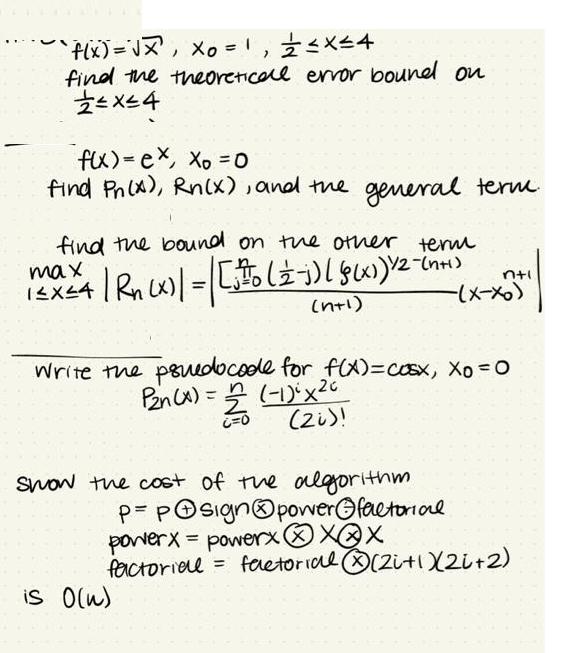 f(x) = √x , x₀ = 1 , 1/2 ≤ x ≤ 4
find the theoreticall error bound on
1/2 ≤ x ≤ 4
f(x) = eˣ, x₀ = 0
find Pn(x), Rn(x) , and the general term.
find the bound on the other term
max 1≤x≤4 | Rn (x)| = | [∏ⁿ j=0 (1/2 - j) ( ξ(x))^(1/2 - (n+1)) / (n+1) (x-x₀)^(n+1) |
Write the psuedocode for f(x) = cosx, x₀ = 0
P2n(x) = Σⁿ i=0 (-1)ⁱ x²ⁱ / (2i)!
Show the cost of the algorithm
p = p ⊕ sign ⊗ power ⊘ factorial
powerx = powerx ⊗ x ⊗ x
factorial = factorial ⊗ (2i+1)(2i+2)
is O(n)